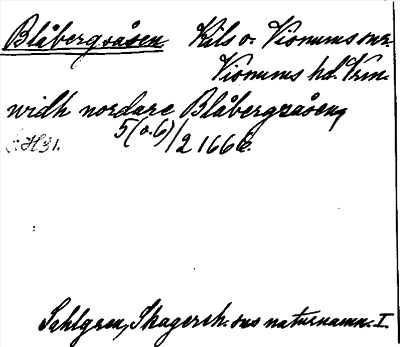 Blåbergsåsen Kils o. Visnums snr.
Visnums hd. Vrm.
widh nordare Blåbergzåsen,
H31. 5(o.6)/2 1666.
Sahlgren, Skagersh. sns naturnamn. I.